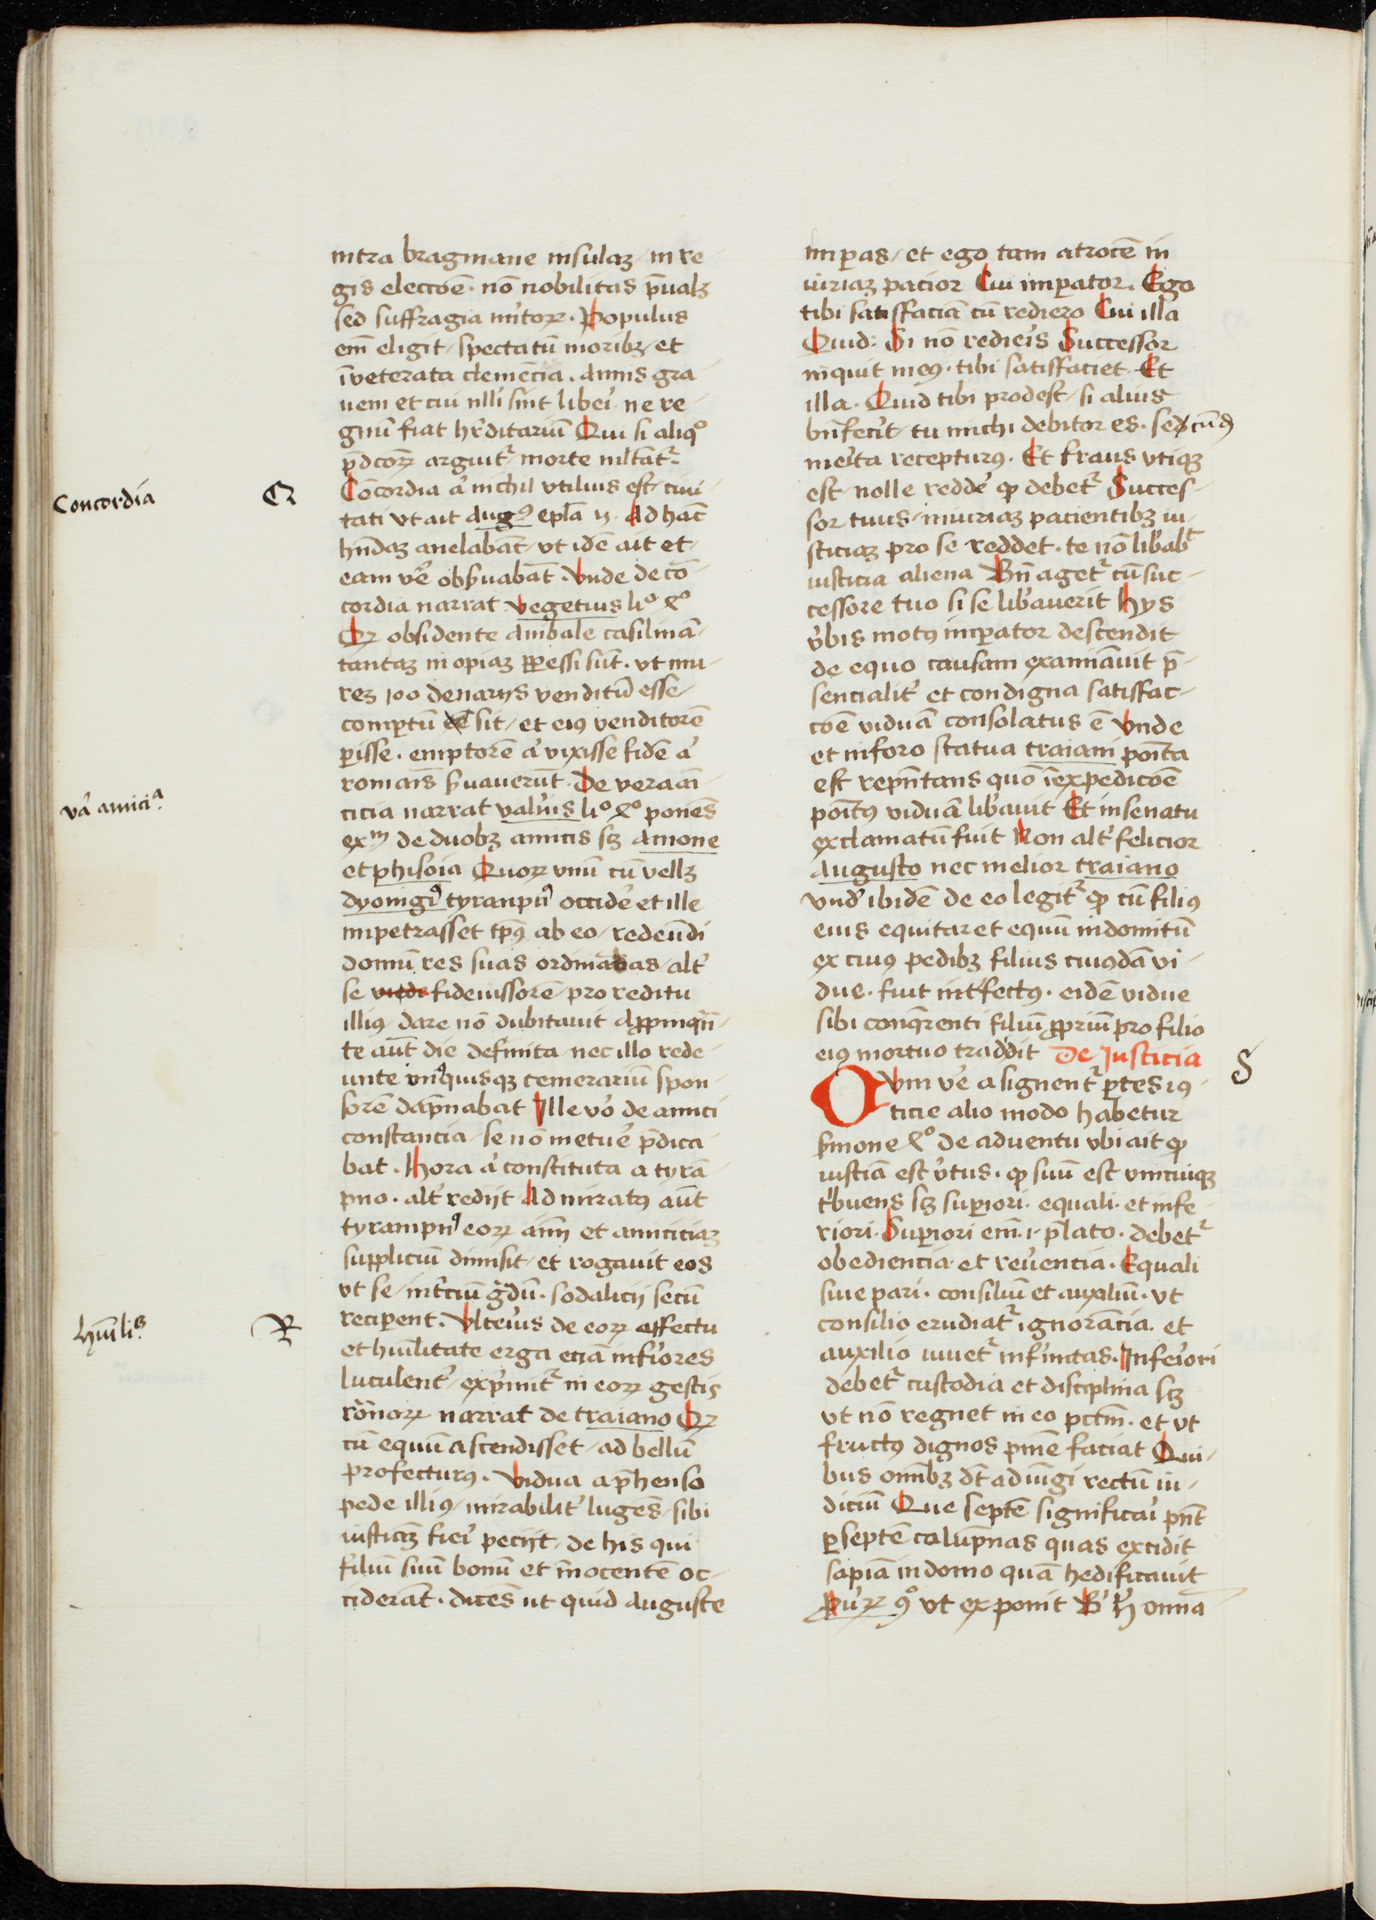 intra bragmane insulaꝫ in re-
gis elecc̃oe͂. nõ nobilitas p̃ualꝫ
sed suffragia mi̕toꝝ. Populus
em̃ eligit spectatũ moribꝫ et
ĩveterata clemẽcia. Annis gra
uem et cui nlli sint libe̕i ne re-
gnũ fiat hr̕ditariũ Qui si aliqͦ
p̃dc̃oꝝ arguit᷑ morte mltat᷑.
Cõcordia a̕ nichil vtilius est ciui
tati vt ait Augꝰ epl̃a ij. Ad hãc
hñdaꝫ anelabãt vt idẽ ait et
eam ve̕ obs̕uabãt. Vnde de cõ-
cordia narrat Vegetius liͦ xͦ
Qꝝ obsidente Anibale casilinã
tantaꝫ inopiaꝫ ꝑpessi sũt. vt mu-
reꝫ 100 denarijs venditũ esse
compertũ sit et eiꝰ venditorẽ
ꝑisse. emptorẽ a̕ vixisse fidẽ a̕
romais̃ s̕uauerũt. De vera ami
ticia narrat val̕ius liͦ xͦ ponẽs
exᵐ de duobꝫ amicis sꝫ Amone
et phisoia Quoꝝ vnũ cũ vellꝫ
dyonigiꝰ tyranpnꝰ occide̕ et ille
impetrasset tp̃ꝰ ab eo redeũdi
domũ res suas ordinadas alt̕
se fideiussorẽ pro reditu
illiꝰ dare nõ dubitauit Aꝓpinqũ-
te aũt die definita nec illo rede
unte vnꝰquisqꝫ temerariũ spon-
sorẽ dãpnabat Ille vo̕ de amici
constancia se nõ metue̕ p̃dica
bat. Hora a̕ constituta a tyrã
pno. alt̕ redijt Admiratꝰ aũt
tyrampnꝰ eoꝝ aĩm et amiciciaꝫ
suppliciũ dimisit et rogauit eos
vt se int̕ciũ gr̃dũ. sodalicij secũ
reciꝑent. Vlte̕ius de eoꝝ affectu
et hũilitate erga eciã infi̕ores
luculent̕ exp̕mit᷑ in eoꝝ gestis
rõnoꝝ narrat de traiano Qꝝ
cũ equũ ascendisset ad bellũ
profecturꝰ. Vidua ap̃henso
pede illiꝰ mirabilit̕ lugẽs sibi
iusticiaꝫ fie̕i pecijt de his qui
filiũ suũ bonũ et ĩnocentẽ oc-
ciderãt. dicẽs ut quid auguste
Concordia
Q
va̕ amiciᵃ.
Hũiliᵃˢ
R
imꝑas et ego tam atrocẽ in
iuriaꝫ pacior Cui imꝑator. Ego
tibi satisfaciã cũ rediero Cui illa
Quid: Si nõ redie̕is Successor
inquit meꝰ. tibi satisfaciet. Et
illa. Quid tibi prodest si alius
bñfeci̕t tu michi debitor es. scd̃ũ
me̕ita recepturꝰ. Et fraus vtiqꝫ
est nolle redde̕ qꝫ debet᷑ Succes-
sor tuus iniuriaꝫ pacientibꝫ iu-
sticiaꝫ pro se reddet. te nõ lib̕abᵗ
iusticia aliena Bñ aget᷑ cũ suc-
cessore tuo si se lib̕auerit Hys
v̕bis motꝰ imꝑator descendit
de equo causam examinãuit p̃-
sencialit̕ et condigna satisfac-
c̃oẽ viduã consolatus ẽ Vnde
et in foro statua traiani poĩta
est rep̃ñtans quõ ĩ expedic̃oẽ
poĩtꝰ viduã lib̕auit Et in senatu
exclamatũ fuit Non alt̕ felicior
Augusto nec melior traiano
Vnd̕ ibidẽ de eo legit᷑ qꝫ cũ filiꝰ
eius equitaret equũ indomitũ
ex cuiꝰ pedibꝫ filius cuiꝰdã vi-
due. fuit int̕fectꝰ. eidẽ vidue
sibi conq̃renti filiũ ꝓpriũ pro filio
eiꝰ mortuo tradidit De Justicia
S
Qvm ve̕ asignent᷑ ꝑtes iꝰ-
ticie alio modo habetur
s̕mone xͦ de aduentu vbi ait qꝫ
iustiã est v̕tus. qꝫ suũ est vnicuiqꝫ
t̕buens sꝫ suꝑiori. equali. et infe-
riori. Suꝑiori em̃ .i. p̃lato. debet᷑
obediencia et reu̕encia. Equali
siue pari. consiliũ et auxiliũ. vt
consilio erudiat᷑ ignorãcia et
auxilio iuuet᷑ inf̕mitas. Infe̕iori
debet᷑ custodia et disciplina sꝫ
vt nõ regnet in eo pctm̃. et vt
fructꝰ dignos pnie̕ faciat Qui-
bus om̃ibꝫ dt̃ adiũgi rectũ iu-
diciũ Que septẽ significa̕i pñt
ꝑ septẽ calũpnas quas excidit
sapiã in domo quã hedificauit
Pu̕ꝝ 9ͦ vt exponit B̕ H̕ omnia